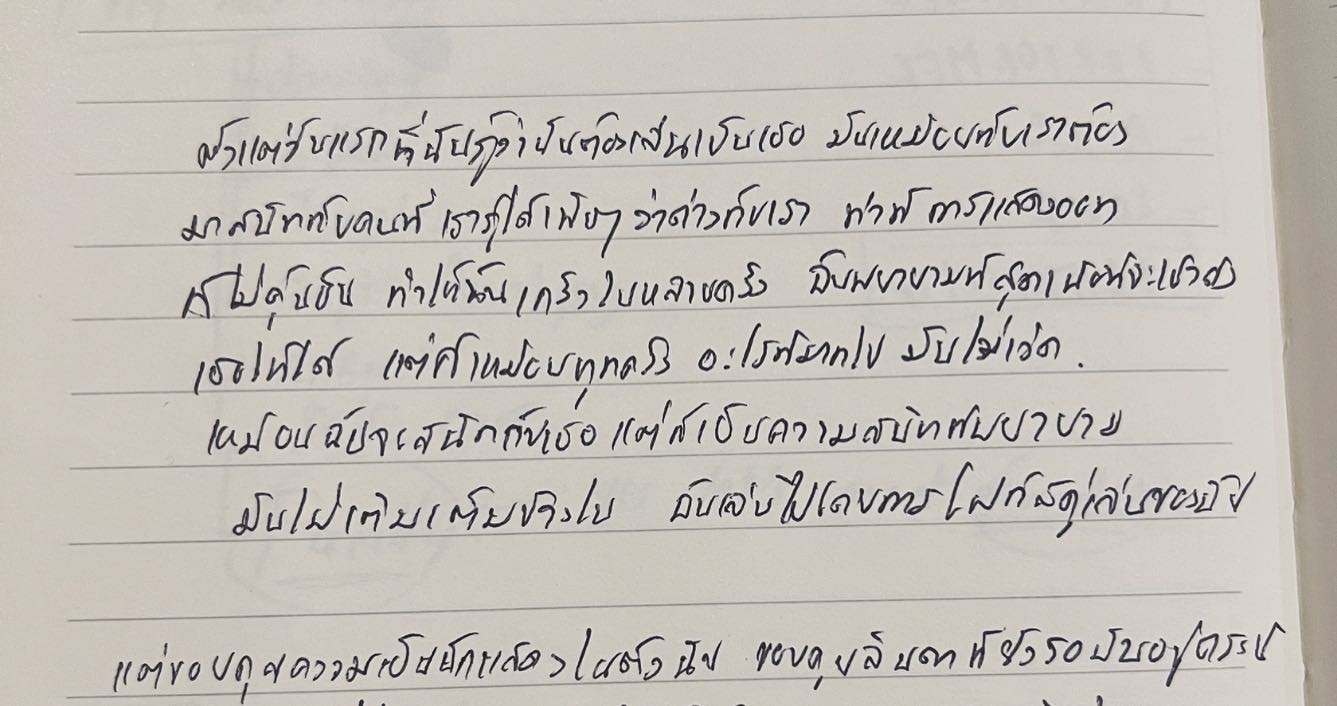 ตั้งแต่วันแรกที่ฉันรู้ว่าฉันต้องเล่นเป็นเธอ มันเหมือนกับเราต้อง
มาสนิทกับคนที่เรารู้ได้เพียงๆ ว่าต่างกับเรา ท่าที การแสดงออก
ที่ไม่คุ้นชิน ทำให้ฉันเกร็งในหลายครั้ง ฉันพยายามที่สุดเพื่อที่จะเข้าถึง
เธอให้ได้ แต่ก็เหมือนทุกครั้ง อะไรที่มากไป มันไม่เวิค.
เหมือนฉันจะสนิทกับเธอ แต่ก็เป็นความสนิทที่พยายาม
มันไม่เติมเต็มข้างใน ฉันเล่นไปโดยการ
แต่ขอบคุณความเป็นนักแสดงในตัวฉัน ขอบคุณจินตนาที่ยังรอฉันอยู่ตรงนี้